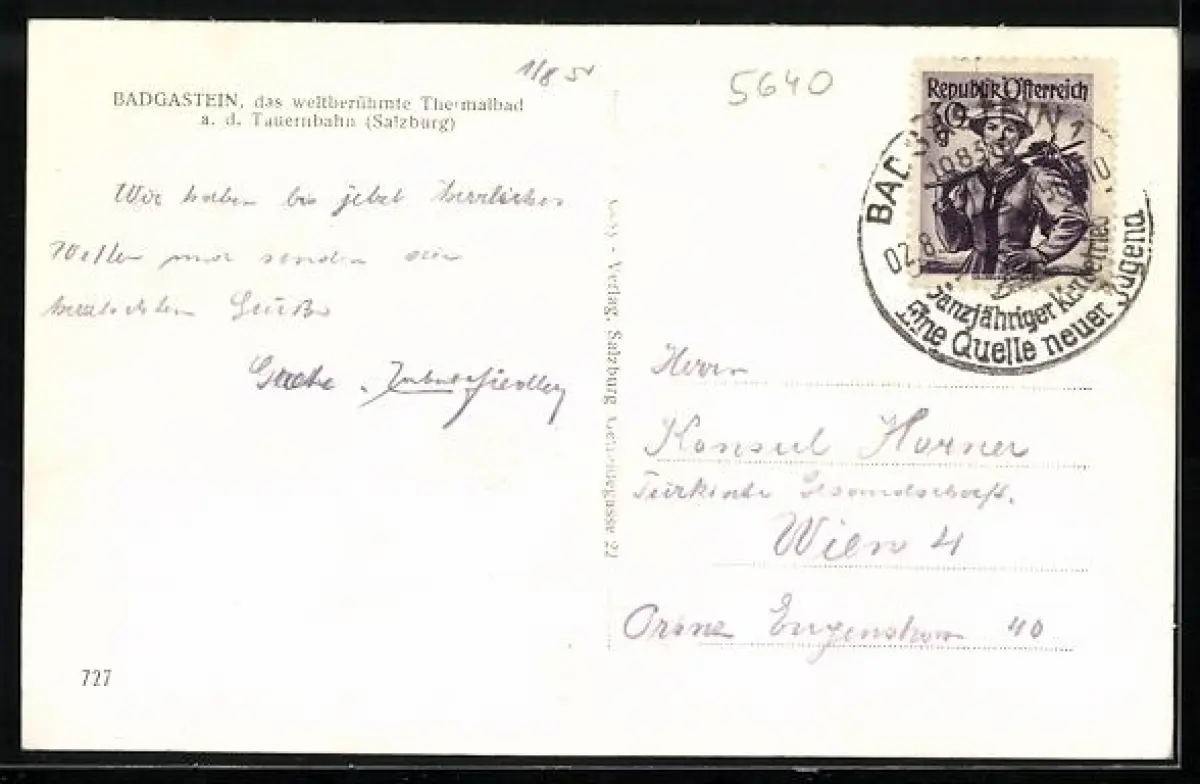 1/8 51
5640
BADGASTEIN, das weltberühmte Thermalbad
a. d. Tauernbahn (Salzburg)
Wir haben bis jetzt herrliches
Wetter und senden die
herzlichsten Grüße
Verlag, Salzburg Getreidegasse 22
Republik Österreich
30 g
BADGASTEIN 1
02.8.
Ganzjähriger Kurbetrieb
Eine Quelle neuer Jugend
Herrn
Konsul Horner
Türkische Gesandschaft.
Wien 4
Prinz Eugenstrasse 40
727